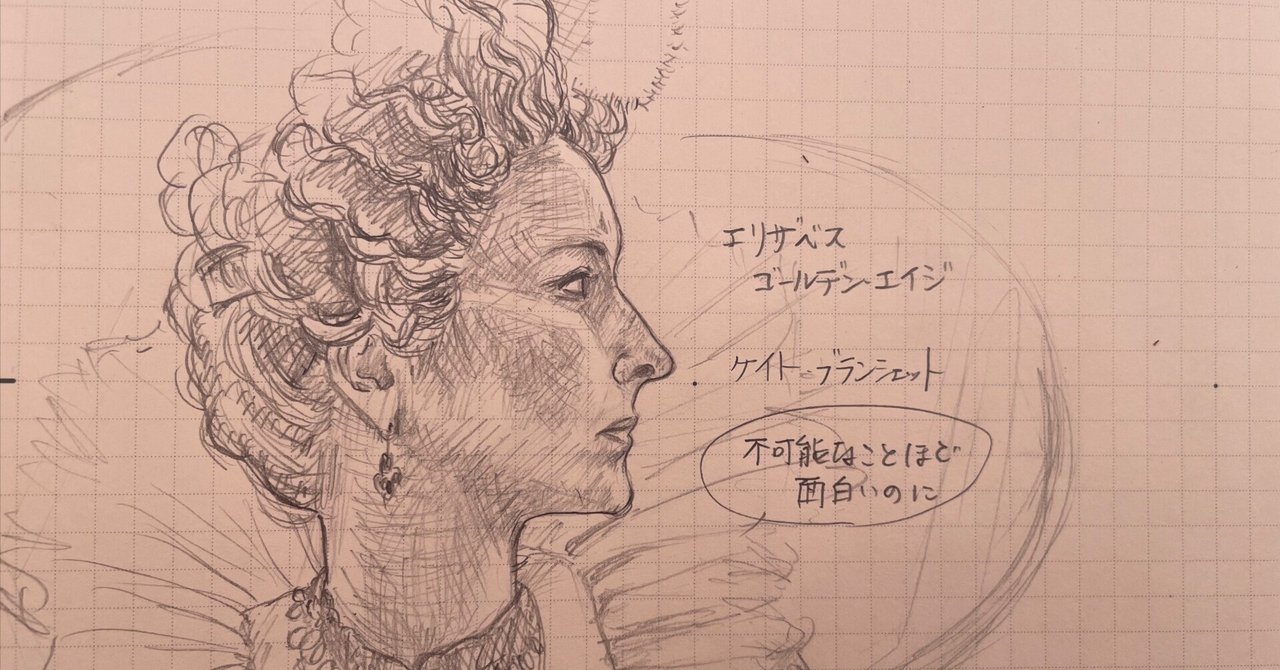 エリザベス
ゴールデン・エイジ
ケイト・ブランシェット
不可能なことほど
面白いのに